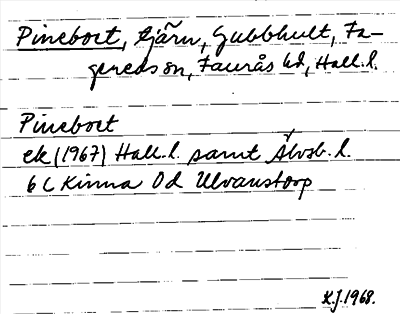 Pinebort, tjärn, Gubbhult, Fa-
gereds sn, Faurås hd, Hall.l.
Pinebort
ek (1967) Hall.l. samt Älvsb.l.
6 C Kinna 0d Ulvanstorp
K.J. 1968.